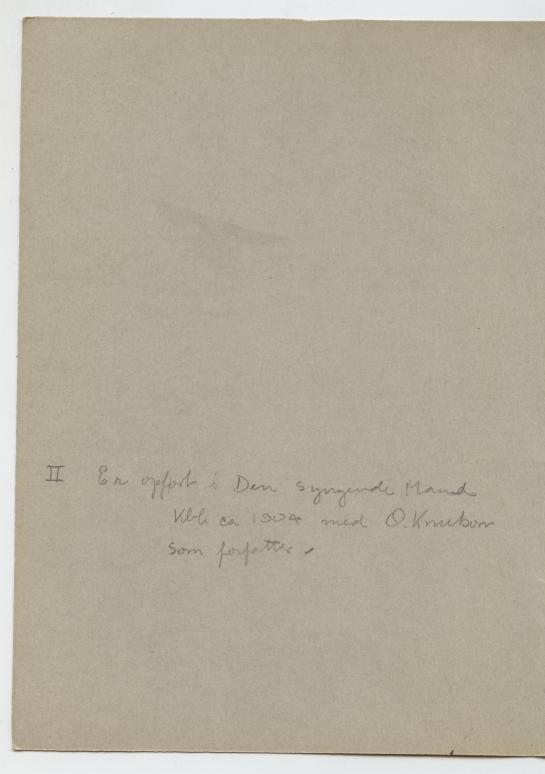 II Er opført i Den syngende Mand
Kbh ca 1904 med O. Knudson
som forfatter.